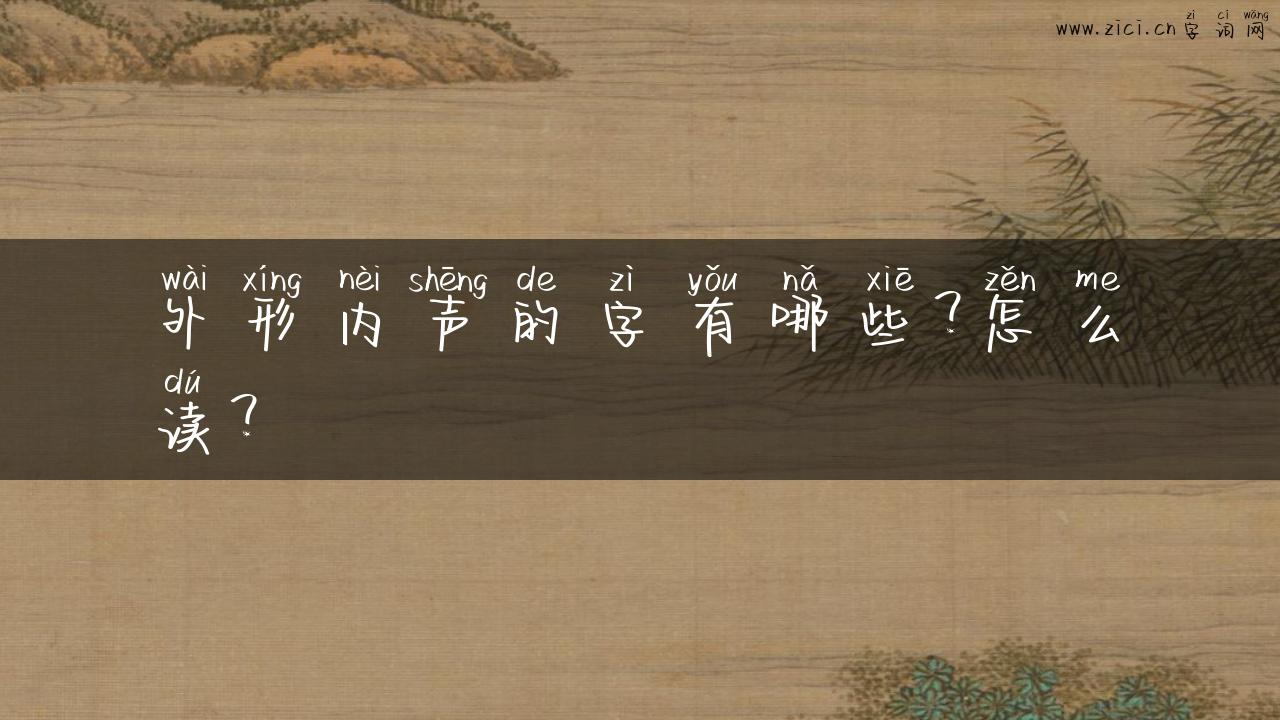 zì cí wǎng
www.zici.cn 字词网
wài xíng nèi shēng de zì yǒu nǎ xiē zěn me
外形内声的字有哪些？怎么
dú
读？